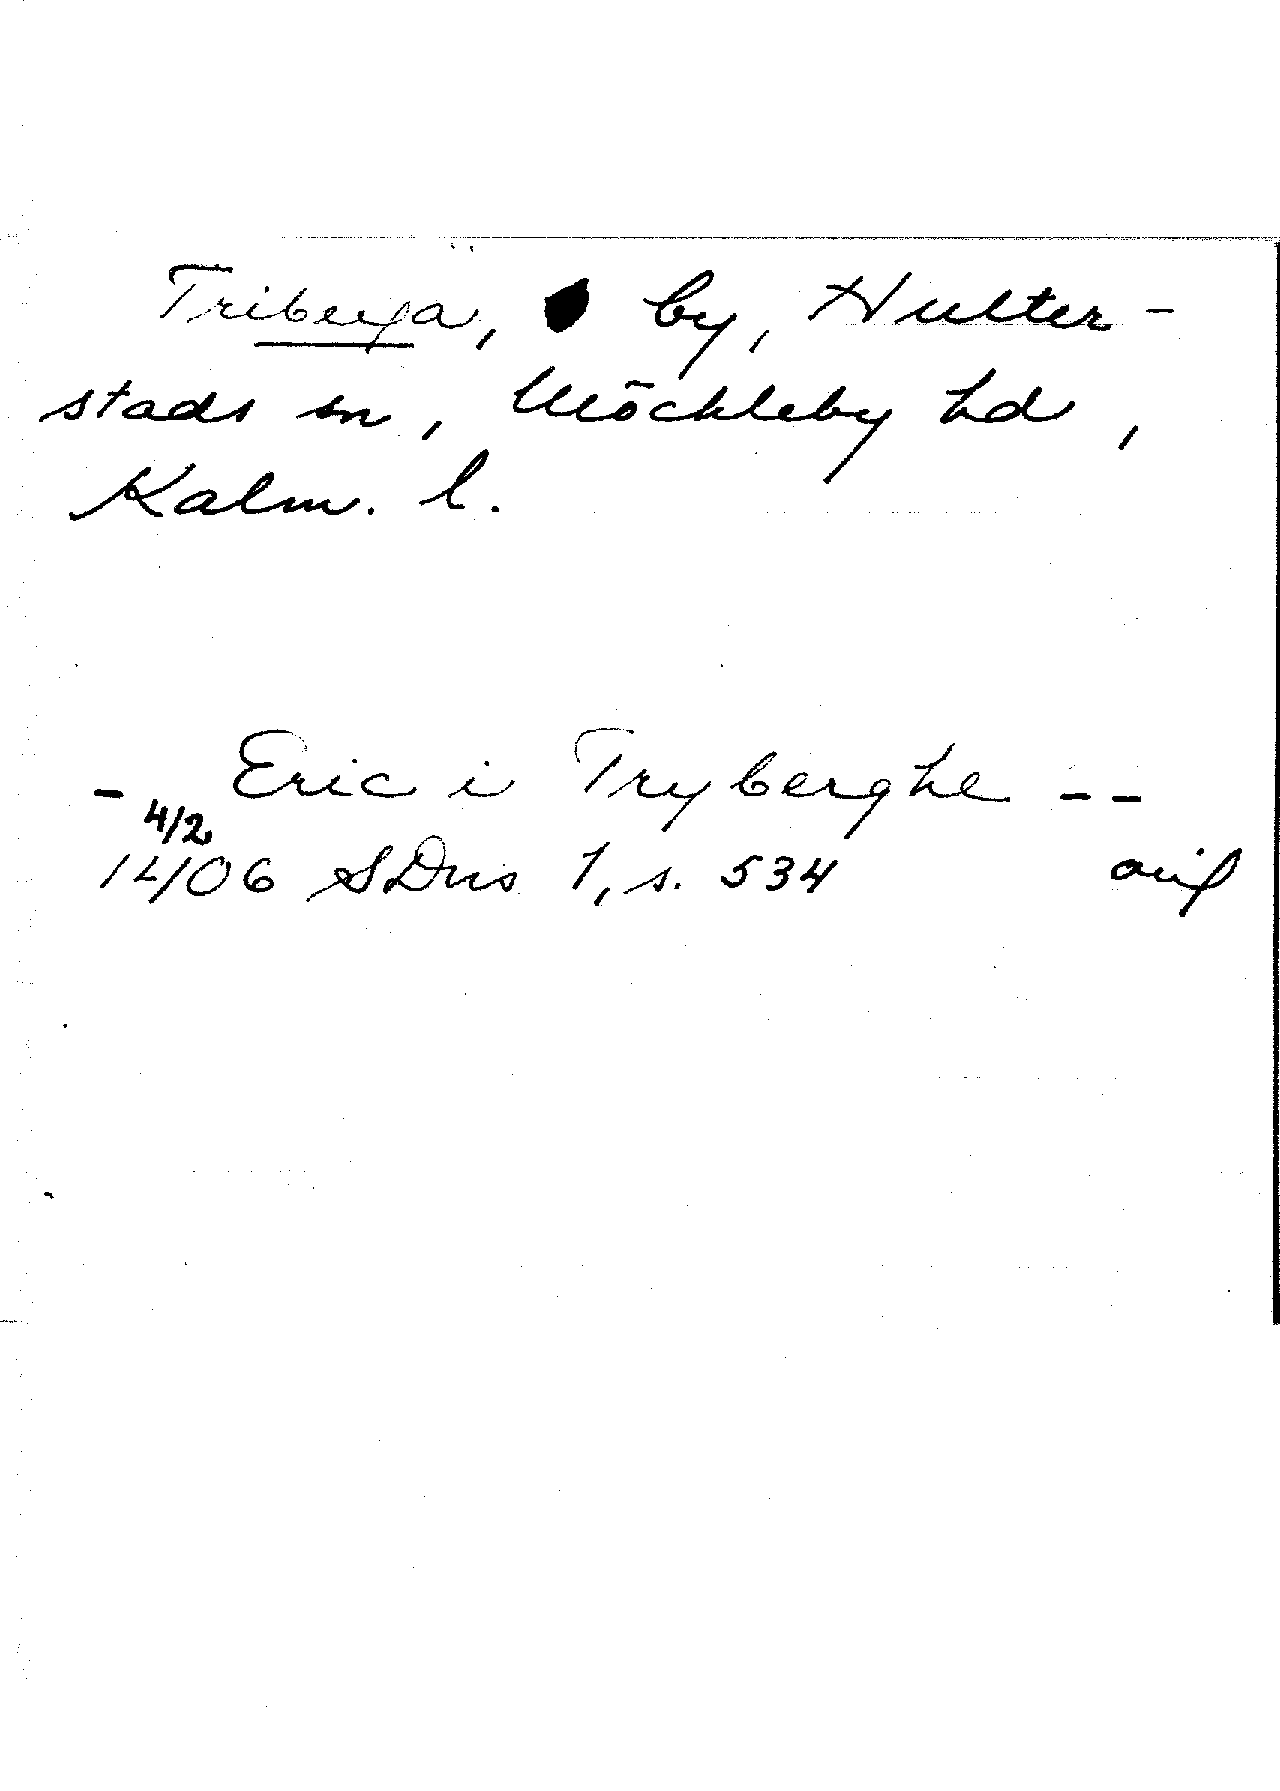 Triberga, by, Hulter-
stads sn, Möckleby hd,
Kalm. l.
- Eric i Tryberghe --
4/2
1406 SDns 1, s. 534 orig